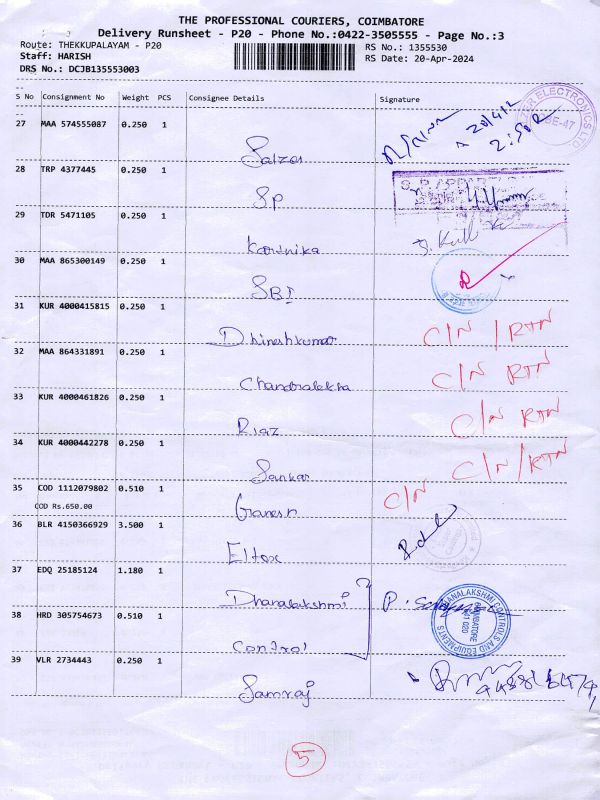 THE PROFESSIONAL COURIERS, COIMBATORE
Delivery Runsheet - P20 - Phone No.:0422-3505555 - Page No.:3
Route: THEKKUPALAYAM - P20
RS No.: 1355530
Staff: HARISH
RS Date: 20-Apr-2024
DRS No.: DCJB135553003
S No Consignment No Weight PCS Consignee Details Signature
27 MAA 574555087 0.250 1
Salzer
2:50
28 TRP 4377445 0.250 1
SP
29 TDR 5471105 0.250 1
Karthika
30 MAA 865300149 0.250 1
SBI
31 KUR 4000415815 0.250 1
Dhineshkumar C/N / RTN
32 MAA 864331891 0.250 1
Chandralekha C/N RTN
33 KUR 4000461826 0.250 1
Riaz C/N RTN
34 KUR 4000442278 0.250 1
Sankar C/N / RTN
35 COD 1112079802 0.510 1
COD Rs.650.00
Ganesh C/N
36 BLR 4150366929 3.500 1
Eltex
37 EDQ 25185124 1.180 1
Dhanalakshmi
38 HRD 305754673 0.510 1
Control
DHANALAKSHMI CONTROLS AND EQUIPMENTS
COIMBATORE
39 VLR 2734443 0.250 1
Samraj
5